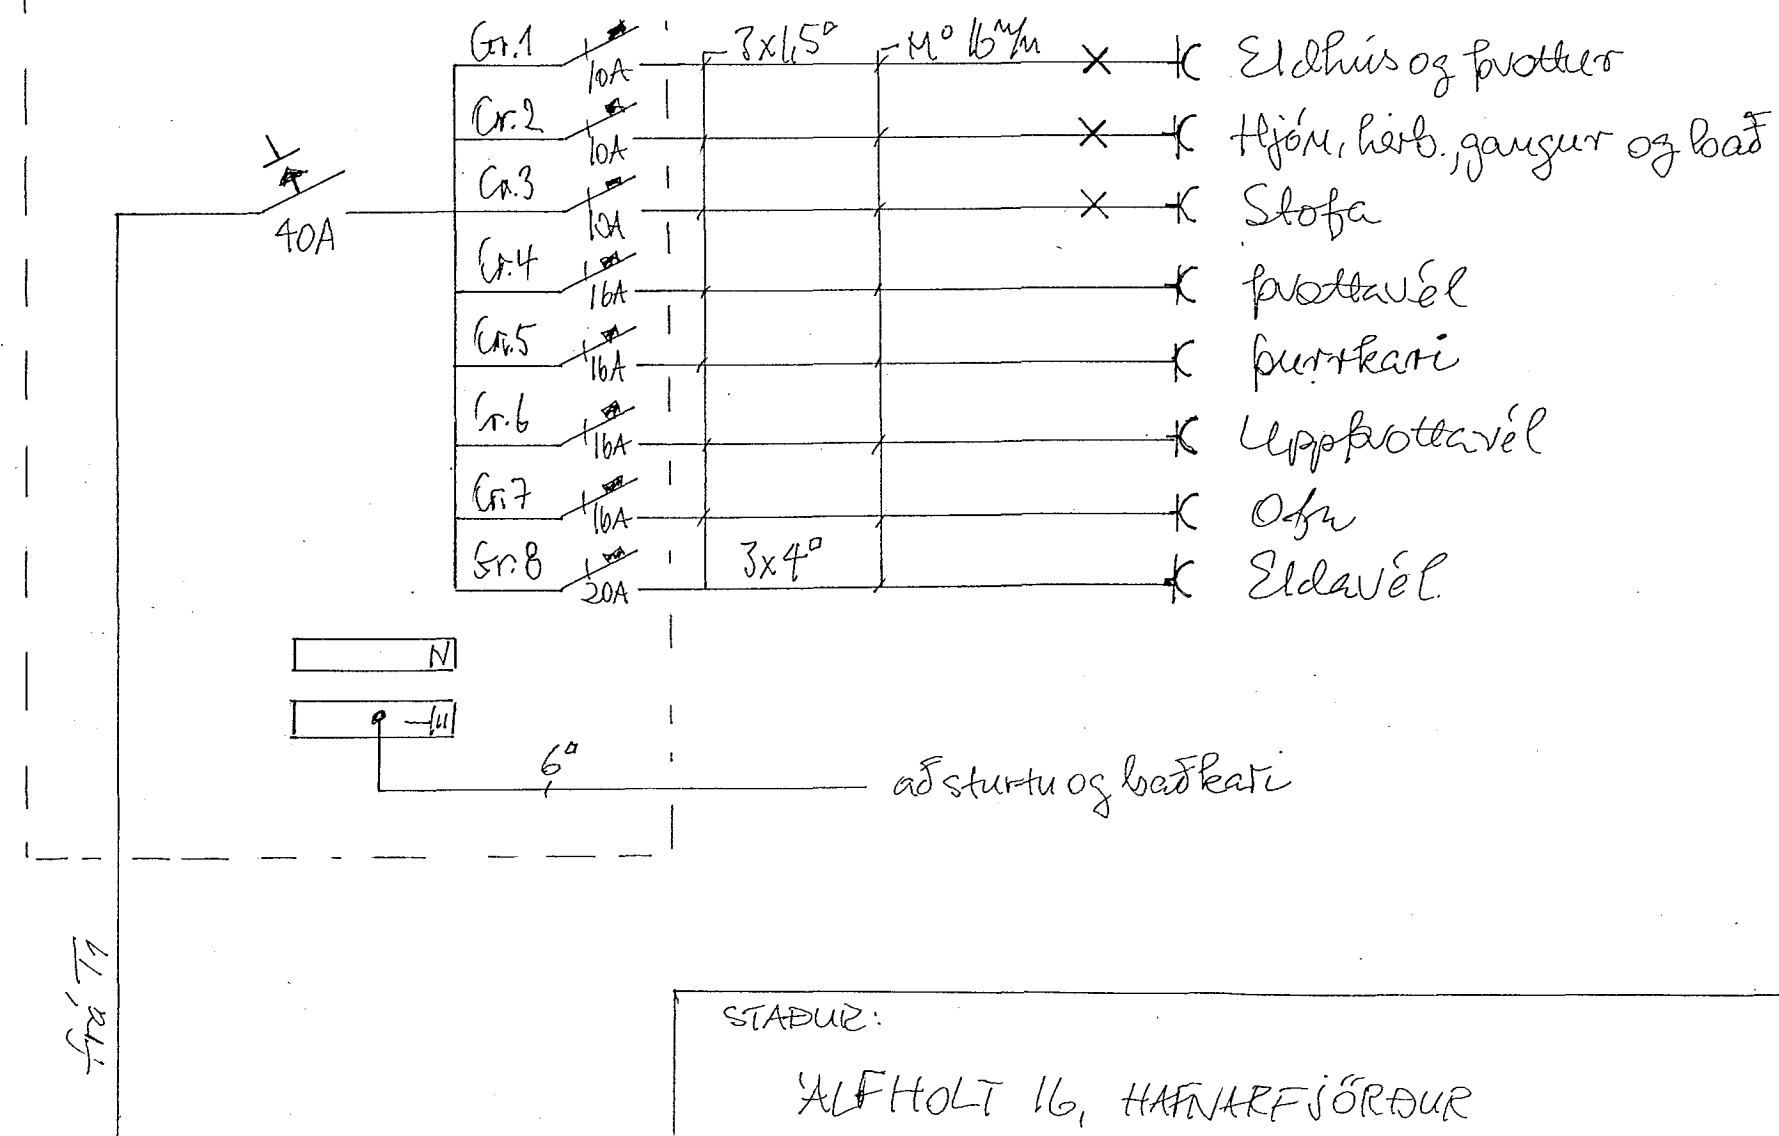 Gr.1 10A 3x1,5▫ M° 16 m/m Eldhús og þvottur
Gr.2 10A Hjón, herb., gangur og bað
Gr.3 10A Stofa
40A
Gr.4 16A þvottavél
Gr.5 16A þurrkari
Gr.6 16A Uppþvottavél
Gr.7 16A Ofn
Gr.8 20A 3x4▫ Eldavél.
N
6▫ að sturtu og baðkari
frá T1
STAÐUR:
ÁLFHOLT 16, HAFNARFJÖRÐUR